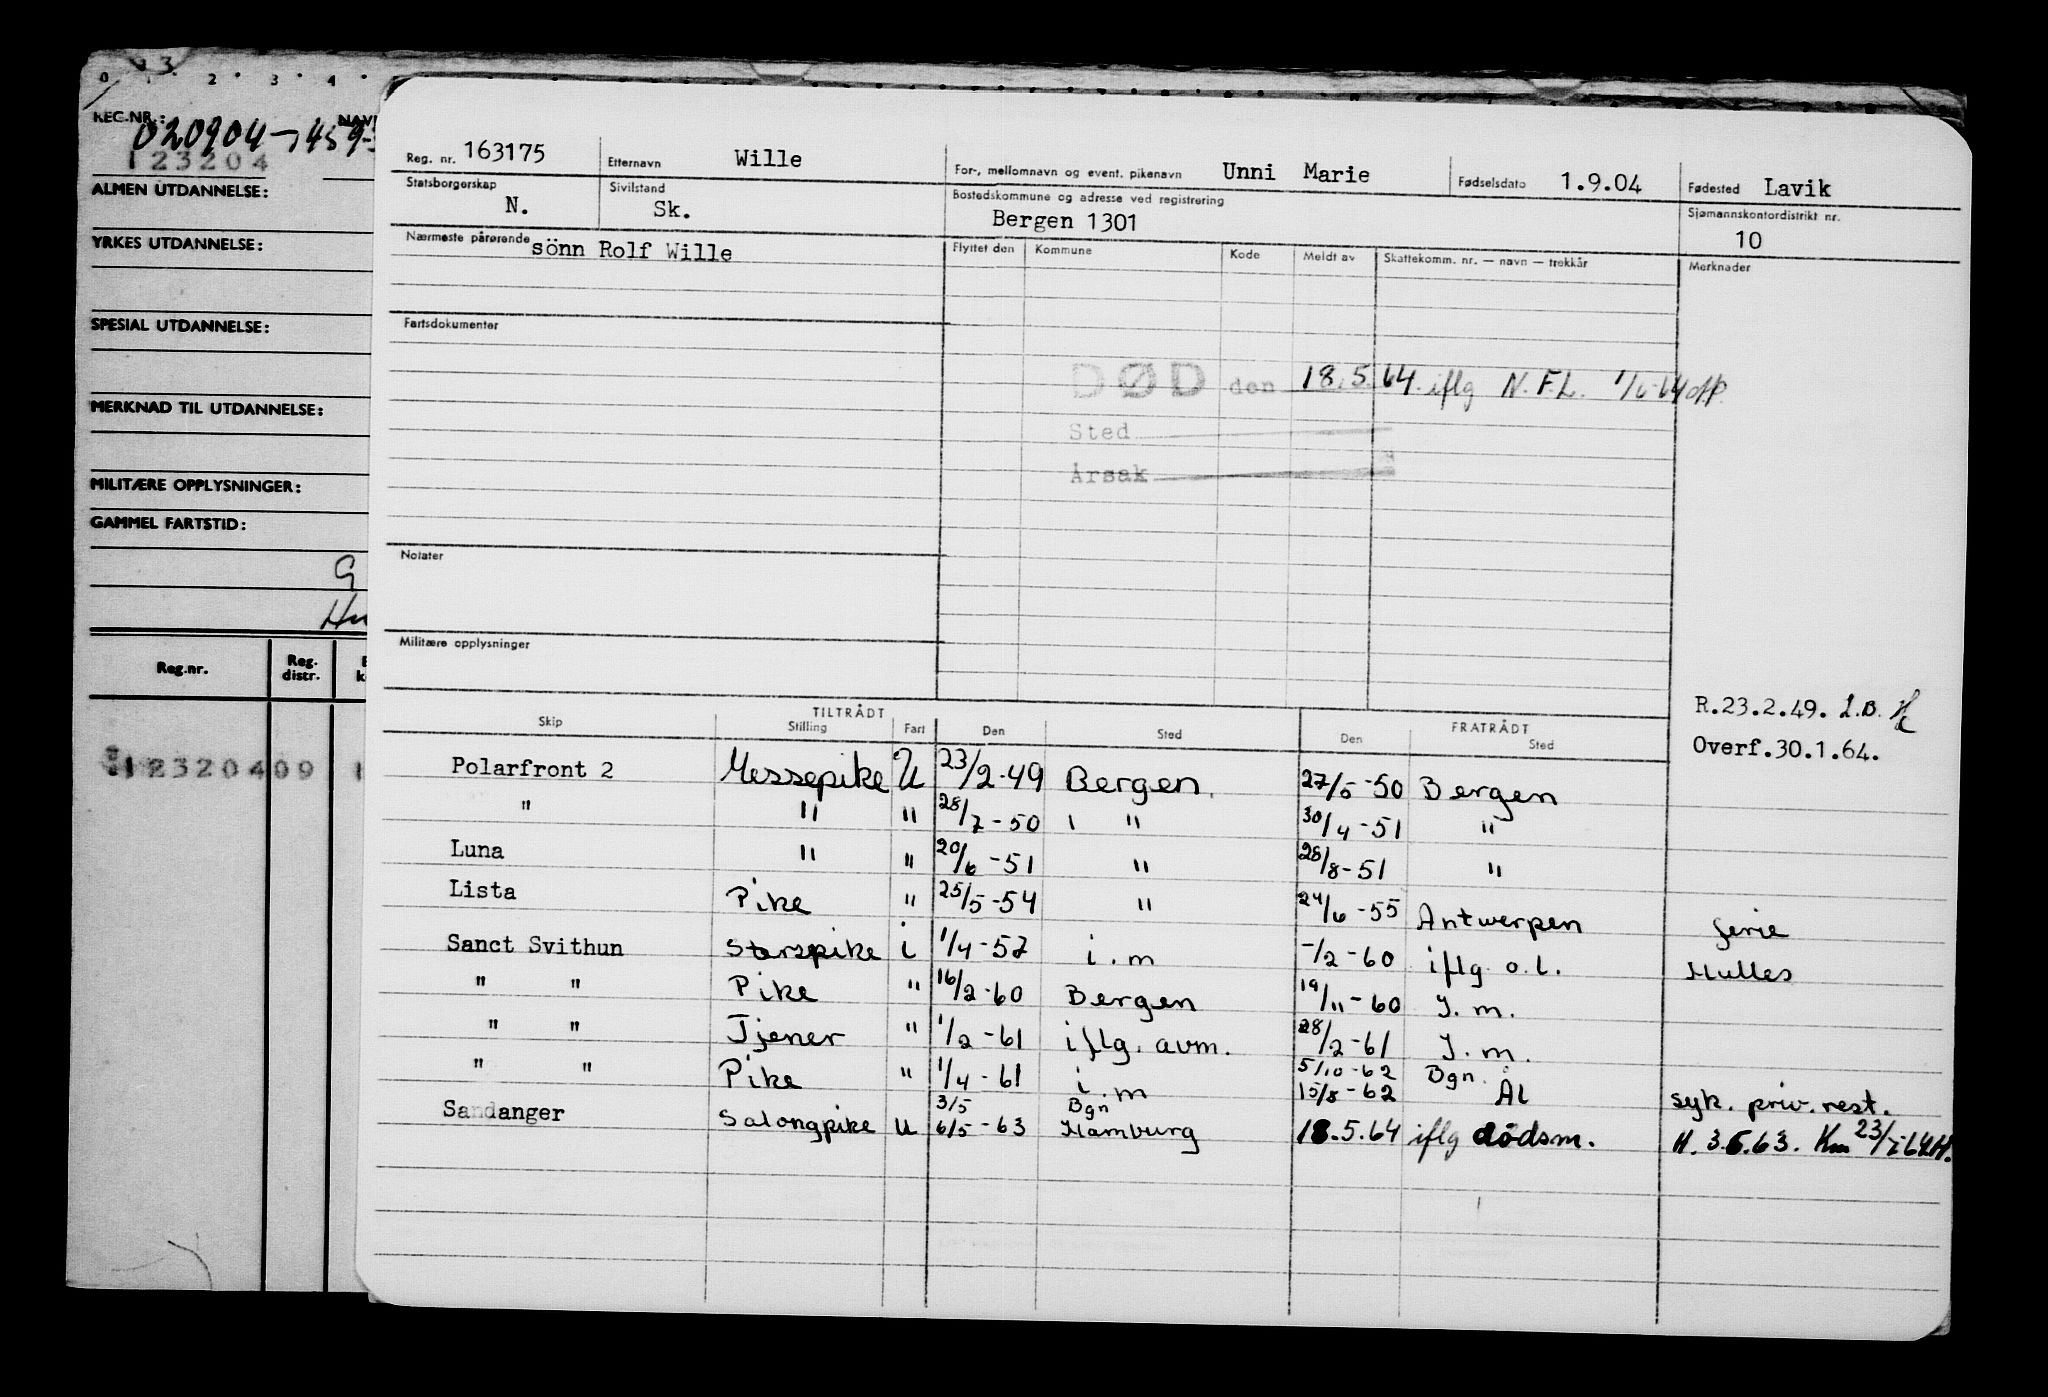 0 1 2 3 4
REC.NR.:
020904-
123204
ALMEN UTDANNELSE:
YRKES UTDANNELSE:
SPESIAL UTDANNELSE:
MERKNAD TIL UTDANNELSE:
MILITÆRE OPPLYSNINGER:
GAMMEL FARTSTID:
G
Reg.nr. Reg. distr.
12320409 1
Reg. nr. 163175 Etternavn Wille For-, mellomnavn og event. pikenavn Unni Marie Fødselsdato 1.9.04 Fødested Lavik
Statsborgerskap N. Sivilstand Sk. Bostedskommune og adresse ved registrering Bergen 1301 Sjømannskontordistrikt nr. 10
Nærmeste pårørende sönn Rolf Wille Flyttet den Kommune Kode Meldt av Skattekomm. nr. — navn — trekkår Merknader
Fartsdokumenter
DØD den 18.5.64 iflg N.F.L. 1/6-64
Sted
Årsak
Notater
Militære opplysninger
R.23.2.49. L.B.
Overf.30.1.64.
TILTRÅDT FRATRÅDT
Skip Stilling Fart Den Sted Den Sted
Polarfront 2 Messepike U 23/2-49 Bergen. 27/5-50 Bergen
" " " 28/7-50 " 30/4-51 "
Luna " " 20/6-51 " 28/8-51 "
Lista Pike " 25/5-54 " 24/6-55 Antwerpen ferie
Sanct Svithun Storspike i 1/4-57 i.m -/2-60 iflg o.l. Mulles
" " Pike " 16/2-60 Bergen 19/11-60 I.m.
" " Tjener " 1/2-61 iflg. avm. 28/2-61 I.m.
" " Pike " 1/4-61 i.m 5/10-62 Bgn.
15/8-62 Ål syk. priv. rest.
Sandanger Salongpike U 3/5 Bgn
6/5-63 Hamburg 18.5.64 iflg dödsm. H. 3.6.63.